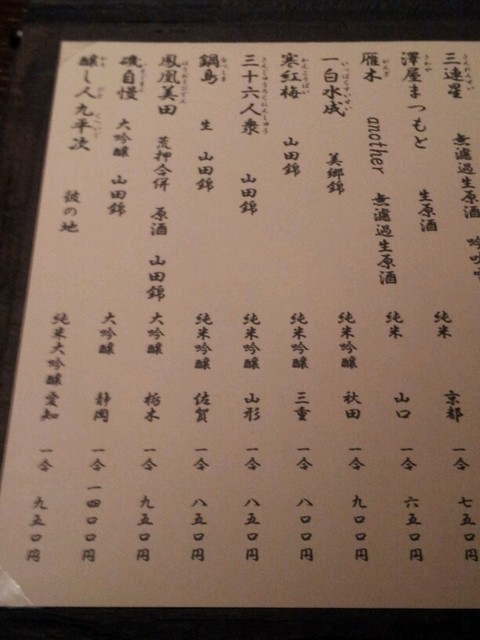 三連星 無濾過生原酒
澤屋まつもと 生原酒 純米 京都 一合 七五〇円
雁木 another 無濾過生原酒 純米 山口 一合 六五〇円
一白水成 美郷錦 純米吟醸 秋田 一合 九〇〇円
寒紅梅 山田錦 純米吟醸 三重 一合 八〇〇円
三十六人衆 山田錦 純米吟醸 山形 一合 八五〇円
鍋島 生 山田錦 純米吟醸 佐賀 一合 八五〇円
鳳凰美田 荒押合併 原酒 山田錦 大吟醸 栃木 一合 九五〇円
磯自慢 大吟醸 山田錦 大吟醸 静岡 一合 一四〇〇円
醸し人九平次 彼の地 純米大吟醸 愛知 一合 九五〇円